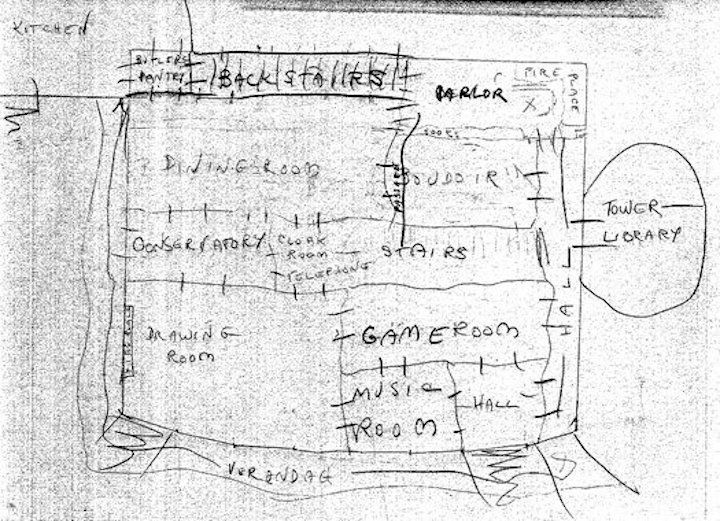 KITCHEN
BUTLERS
PANTRY
BACK STAIRS
PARLOR
FIRE
PLACE
X
DOORS
DINING ROOM
PASSAGE
BOUDOIR
TOWER
LIBRARY
CONSERVATORY
CLOAK
ROOM
TELEPHONE
STAIRS
HALL
DRAWING
ROOM
GAME ROOM
MUSIC
ROOM
HALL
VERANDAG